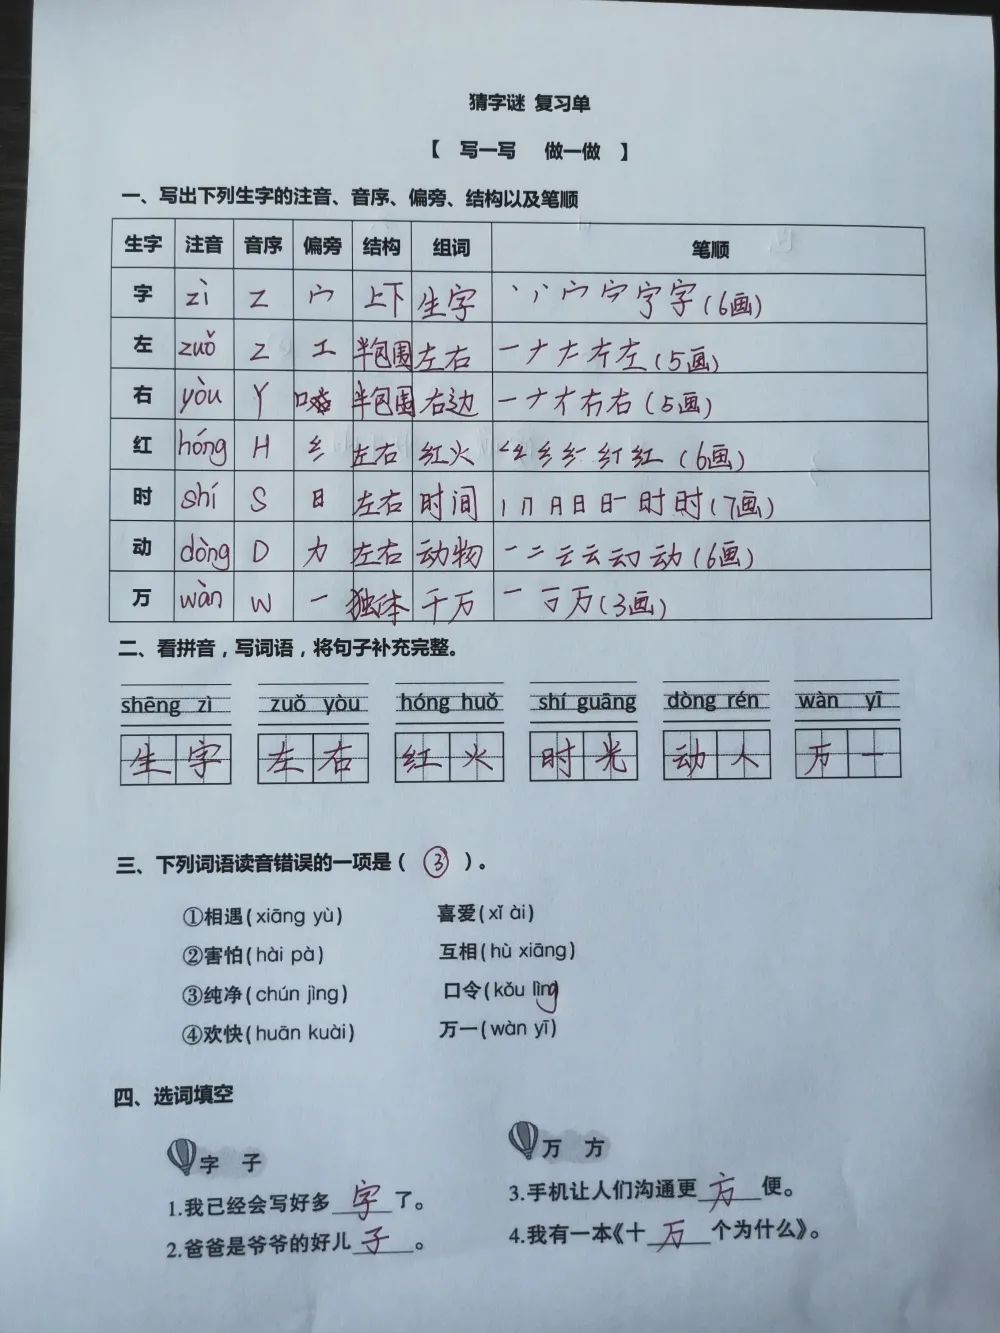 猜字谜 复习单
【 写一写 做一做 】
一、写出下列生字的注音、音序、偏旁、结构以及笔顺
生字 注音 音序 偏旁 结构 组词 笔顺
字 zì Z 宀 上下 生字 丶 丷 宀 宁 字 字(6画)
左 zuǒ Z 工 半包围 左右 一 ナ 𠂇 左 左(5画)
右 yòu Y 口 半包围 右边 一 ナ 右 右(5画)
红 hóng H 纟 左右 红火 纟 红 (6画)
时 shí S 日 左右 时间 丨 冂 月 日 日一 时 时(7画)
动 dòng D 力 左右 动物 一 二 云 云 动 动(6画)
万 wàn W 一 独体 千万 一 丆 万(3画)
二、看拼音,写词语,将句子补充完整。
shēng zì zuǒ yòu hóng huǒ shí guāng dòng rén wàn yī
生字 左右 红火 时光 动人 万一
三、下列词语读音错误的一项是( ③ )。
①相遇(xiāng yù) 喜爱(xǐ ài)
②害怕(hài pà) 互相(hù xiāng)
③纯净(chún jìng) 口令(kǒu lìng)
④欢快(huān kuài) 万一(wàn yī)
四、选词填空
字 子 万 方
1.我已经会写好多字了。 3.手机让人们沟通更方便。
2.爸爸是爷爷的好儿子。 4.我有一本《十万个为什么》。